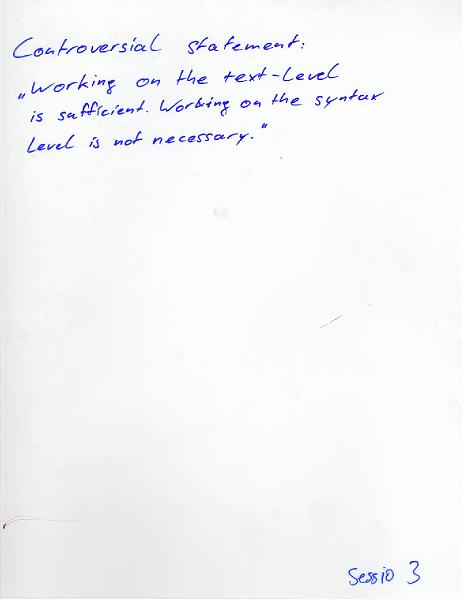 Controversial statement:
„Working on the text-level
is sufficient. Working on the syntax
level is not necessary.“
Sessio 3